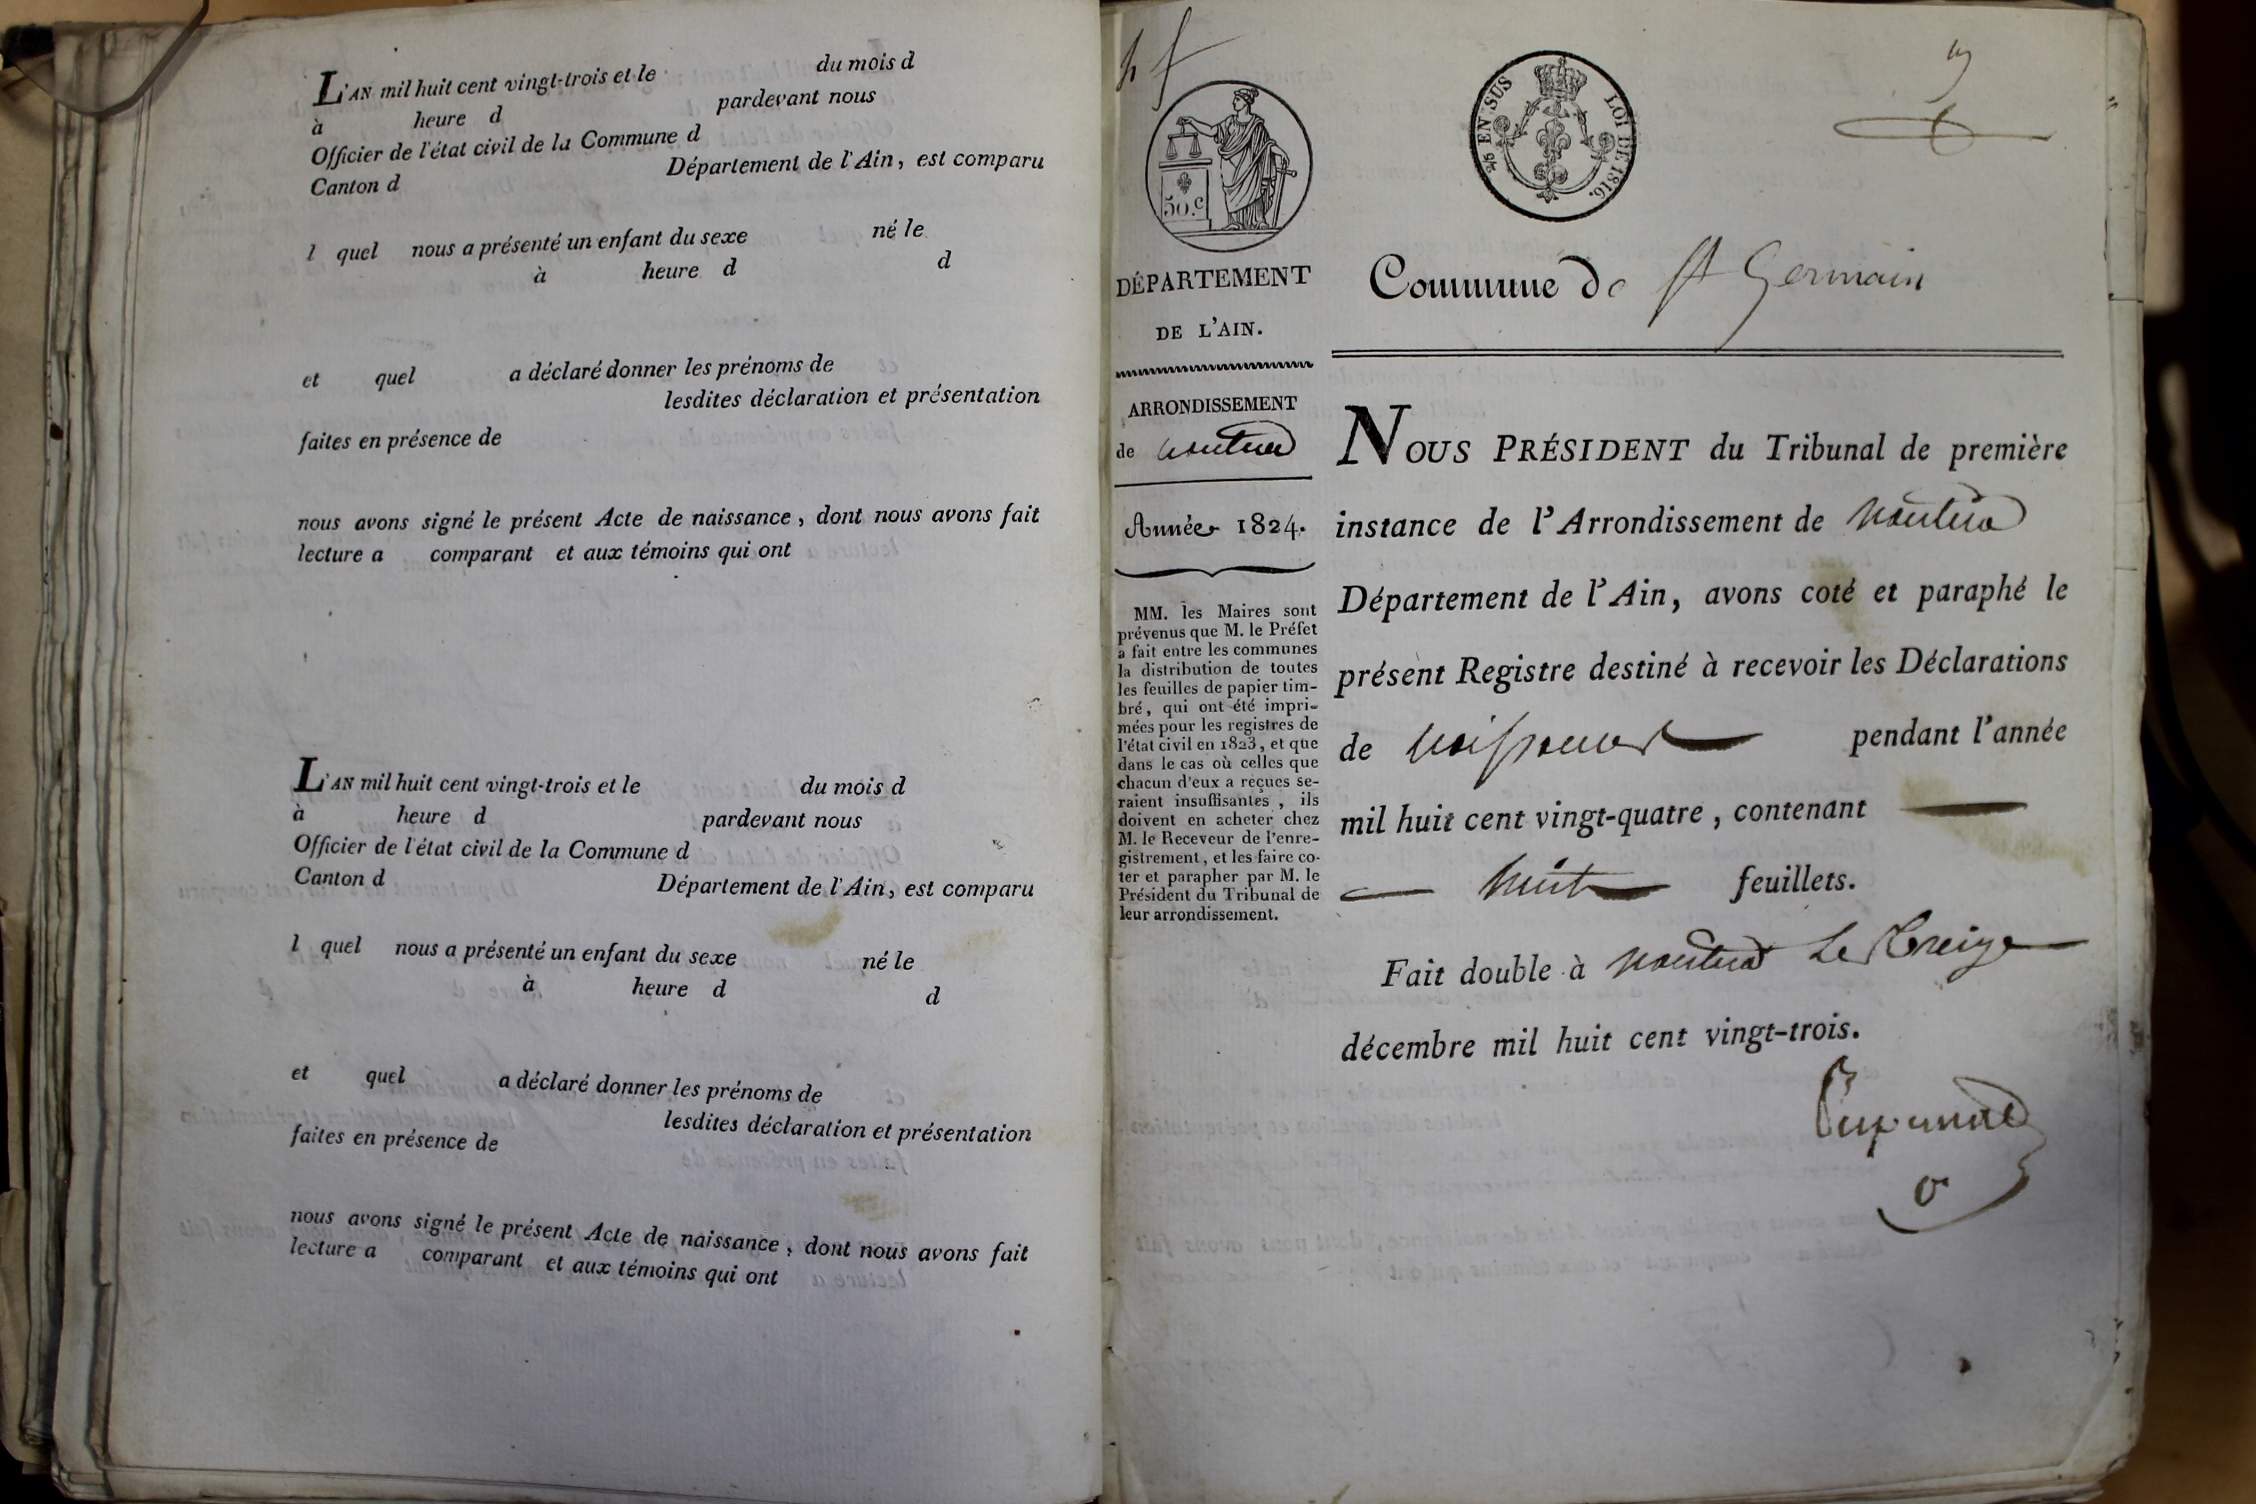 L'AN mil huit cent vingt-trois et le du mois d
à heure d pardevant nous
Officier de l'état civil de la Commune d
Canton d Département de l'Ain, est comparu
l quel nous a présenté un enfant du sexe né le
à heure d d
et quel a déclaré donner les prénoms de
lesdites déclaration et présentation
faites en présence de
nous avons signé le présent Acte de naissance, dont nous avons fait
lecture a comparant et aux témoins qui ont
L'AN mil huit cent vingt-trois et le du mois d
à heure d pardevant nous
Officier de l'état civil de la Commune d
Canton d Département de l'Ain, est comparu
l quel nous a présenté un enfant du sexe né le
à heure d d
et quel a déclaré donner les prénoms de
lesdites déclaration et présentation
faites en présence de
nous avons signé le présent Acte de naissance, dont nous avons fait
lecture a comparant et aux témoins qui ont
50.c
EN SUS LOI DE 1816.
DÉPARTEMENT
DE L'AIN.
ARRONDISSEMENT
de Nantua
Année 1824.
MM. les Maires sont
prévenus que M. le Préfet
a fait entre les communes
la distribution de toutes
les feuilles de papier tim-
bré, qui ont été impri-
mées pour les registres de
l'état civil en 1823, et que
dans le cas où celles que
chacun d'eux a reçues se-
raient insuffisantes, ils
doivent en acheter chez
M. le Receveur de l'enre-
gistrement, et les faire co-
ter et parapher par M. le
Président du Tribunal de
leur arrondissement.
Commune de St Germain
NOUS PRÉSIDENT du Tribunal de première
instance de l'Arrondissement de Nantua
Département de l'Ain, avons coté et paraphé le
présent Registre destiné à recevoir les Déclarations
de naissances pendant l'année
mil huit cent vingt-quatre, contenant
huit feuillets.
Fait double à Nantua le treize
décembre mil huit cent vingt-trois.